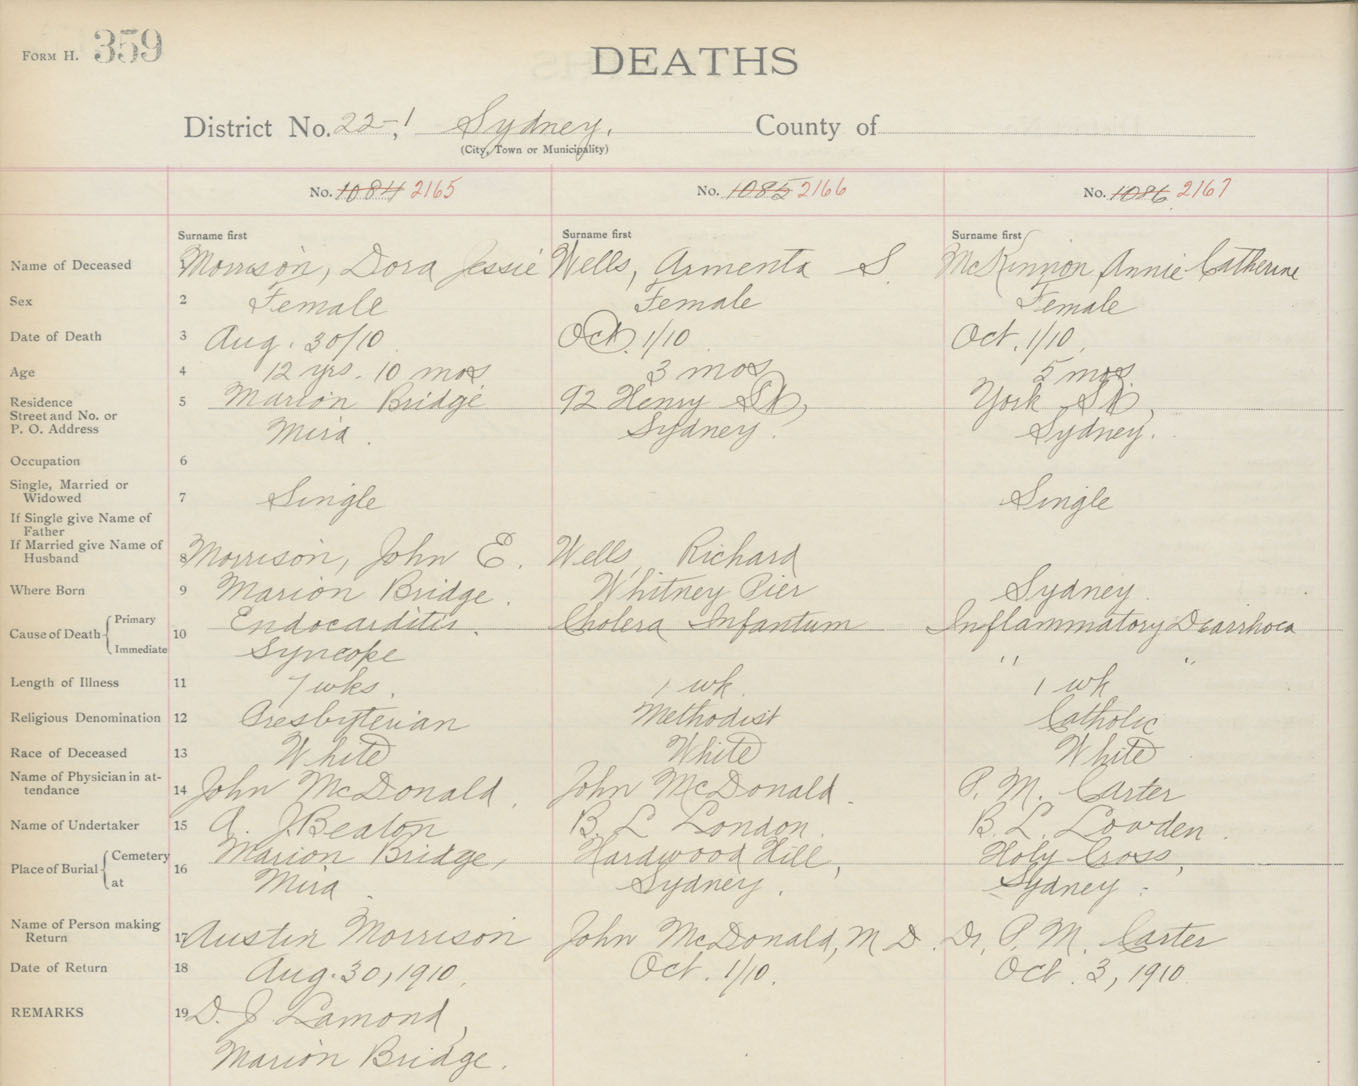 FORM H. 359
DEATHS
District No. 22-,1 Sydney. County of
(City, Town or Municipality)
No. 1084 2165 No. 1085 2166 No. 1086 2167
Surname first Surname first Surname first
Name of Deceased 1 Morrison, Dora Jessie Wells, Armenta S McKinnon, Annie Catherine
Sex 2 Female Female Female
Date of Death 3 Aug. 30/10. Oct. 1/10 Oct. 1/10
Age 4 12 yrs. 10 mos 3 mos 5 mos
Residence 5 Marion Bridge 92 Henry St, York St,
Street and No. or
P. O. Address Mira. Sydney. Sydney.
Occupation 6
Single, Married or
Widowed 7 Single Single
If Single give Name of
Father
If Married give Name of
Husband 8 Morrison, John E. Wells, Richard
Where Born 9 Marion Bridge. Whitney Pier Sydney
Cause of Death Primary 10 Endocarditis. Cholera Infantum Inflammatory Diarrhoea
Immediate Syncope " "
Length of Illness 11 7 wks. 1 wk. 1 wk
Religious Denomination 12 Presbyterian Methodist Catholic
Race of Deceased 13 White White White
Name of Physician in at-
tendance 14 John McDonald. John McDonald. P. M. Carter
Name of Undertaker 15 A. J. Beaton B. L London. B. L. Lowden.
Place of Burial Cemetery 16 Marion Bridge, Hardwood Hill, Holy Cross,
at Mira Sydney. Sydney.
Name of Person making
Return 17 Austin Morrison John McDonald, M D. Dr. P. M. Carter
Date of Return 18 Aug. 30, 1910. Oct. 1/10. Oct. 3, 1910
REMARKS 19 D. J. Lamond,
Marion Bridge.